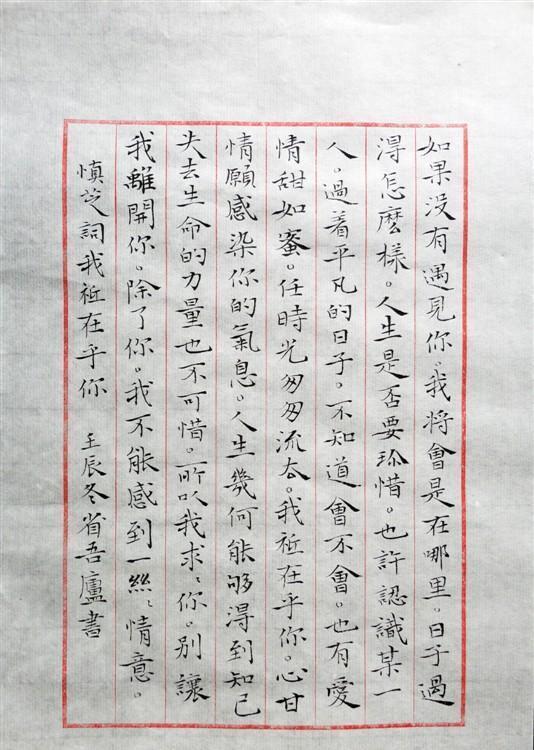 如果没有遇見你。我將會是在哪里。日子過
得怎麽樣。人生是否要珎惜。也許認識某一
人。過着平凡的日子。不知道會不會。也有愛
情甜如蜜。任時光匆匆流去。我衹在乎你。心甘
情願感染你的氣息。人生幾何能够得到知己
失去生命的力量也不可惜。所以我求、你。別讓
我離開你。除了你。我不能感到一絲、情意。
慎芝詞我衹在乎你 壬辰冬省吾廬書